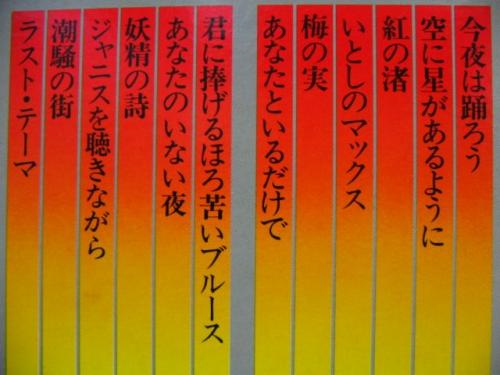 今夜は踊ろう
空に星があるように
紅の渚
いとしのマックス
梅の実
あなたといるだけで
君に捧げるほろ苦いブルース
あなたのいない夜
妖精の詩
ジャニスを聴きながら
潮騒の街
ラスト・テーマ